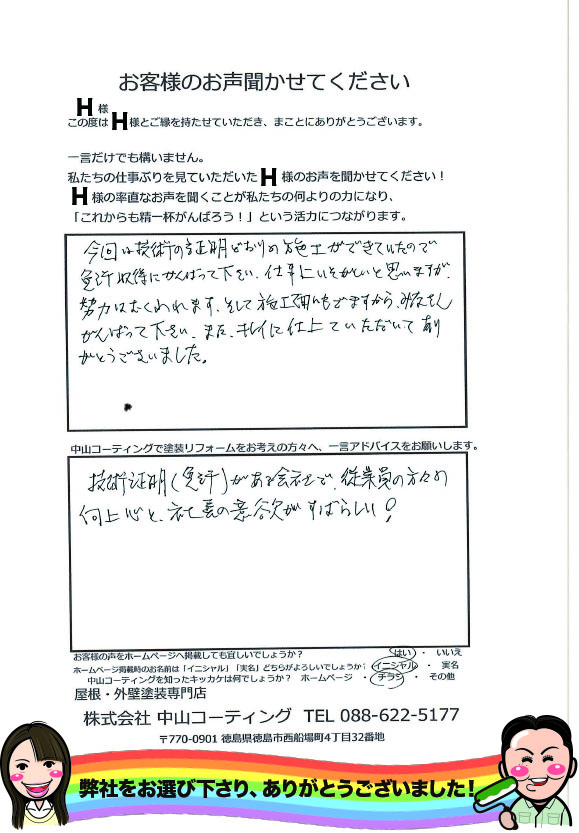 お客様のお声聞かせてください
H様
この度はH様とご縁を持たせていただき、まことにありがとうございます。
一言だけでも構いません。
私たちの仕事ぶりを見ていただいたH様のお声を聞かせてください!
H様の率直なお声を聞くことが私たちの何よりの力になり、
「これからも精一杯がんばろう!」という活力につながります。
今回は技術の証明どおりの施工ができていたので
免許収得にがんばって下さい、仕事にいそがしいと思いますが、
努力はむくわれます、そして施工
がんばって下さい、また、キレイに仕上ていただいてあり
がとうございました。
中山コーティングで塗装リフォームをお考えの方々へ、一言アドバイスをお願いします。
技術証明(免許)がある会社で、従業員の方々の
向上心と、社長の意欲がすばらしい!
お客様の声をホームページへ掲載しても宜しいでしょうか? はい ・ いいえ
ホームページ掲載時のお名前は「イニシャル」「実名」どちらがよろしいでしょうか? イニシャル ・ 実名
中山コーティングを知ったキッカケは何でしょうか? ホームページ ・ チラシ ・ その他
屋根・外壁塗装専門店
株式会社 中山コーティング TEL 088-622-5177
〒770-0901 徳島県徳島市西船場町4丁目32番地
弊社をお選び下さり、ありがとうございました!